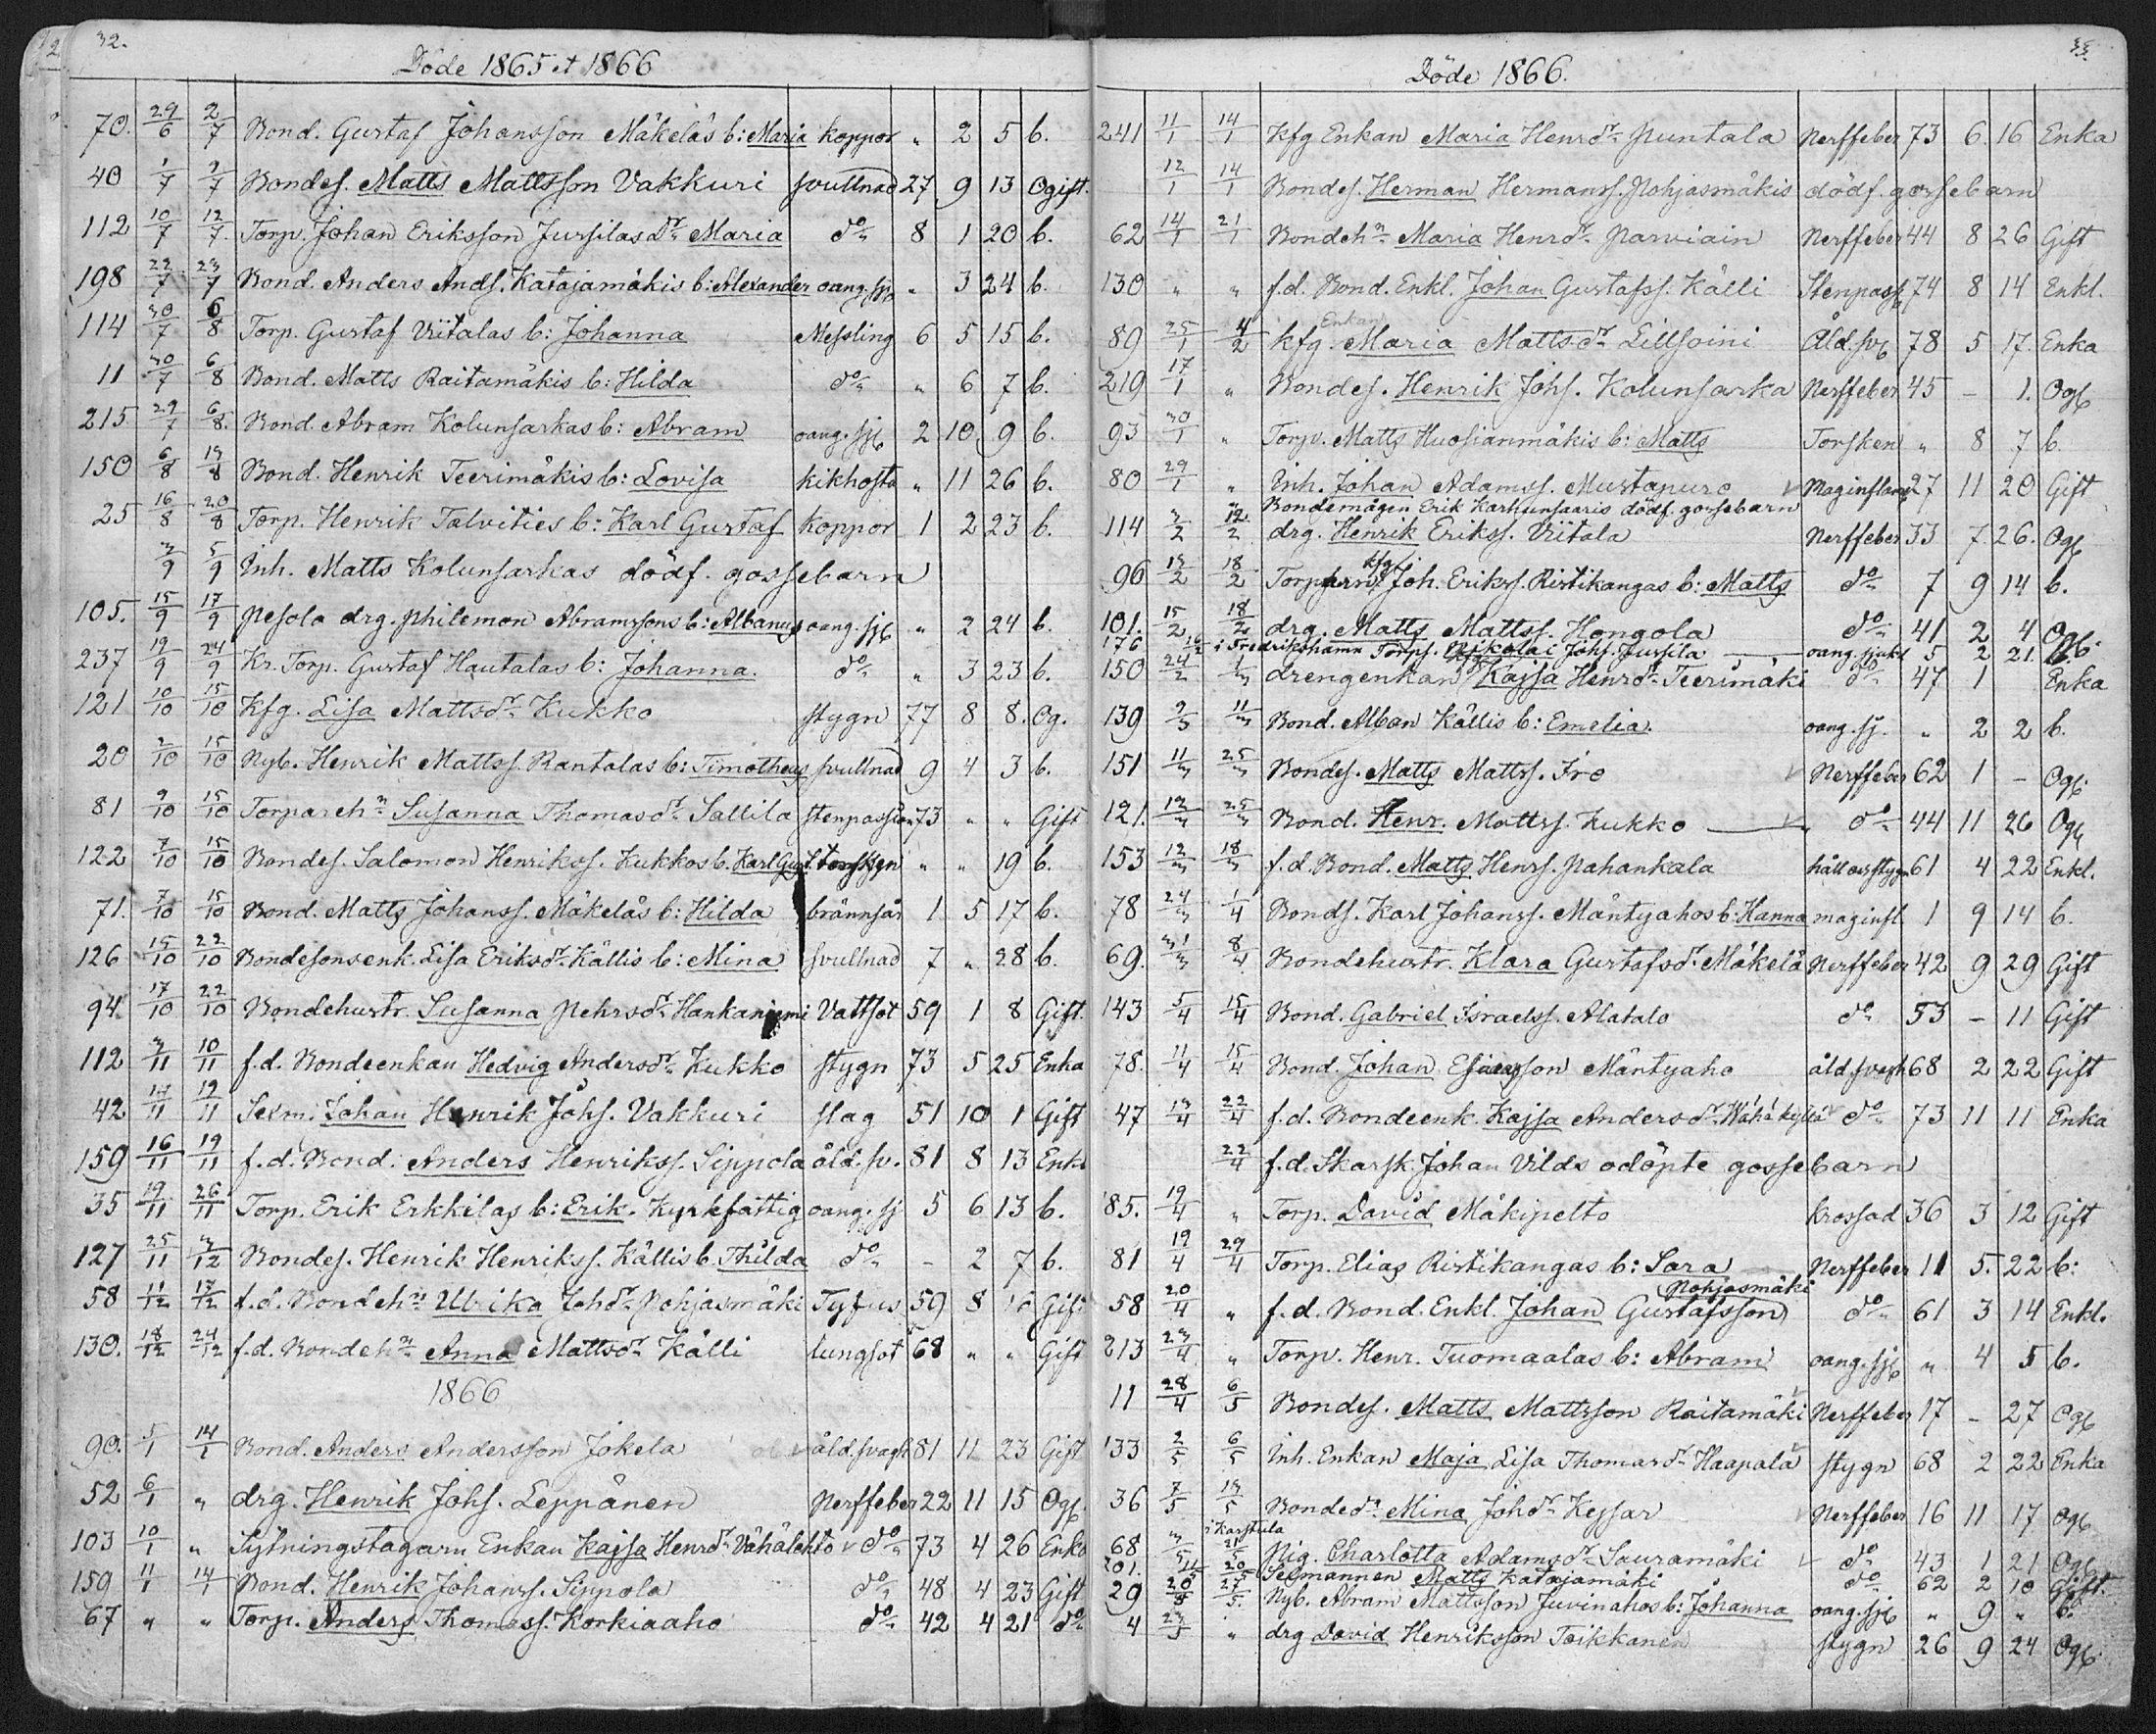 32.
Döde 1865 et 1866
70. 29/6 2/7 Bond. Gustaf Johansson Mäkeläs b: Maria koppor " 2 5 b.
40 1/7 2/7 Bondes. Matts Mattsson Vakkuri svullnad 27 9 13 Ogift.
112 10/7 12/7 Torp. Johan Eriksson Jussilas dr Maria do 8 1 20 b.
198 22/7 23/7 Bond. Anders Ands. Katajamäkis b: Alexander oang. sjd " 3 24 b.
114 30/7 6/8 Torp. Gustaf Viitalas b: Johanna Messling 6 5 15 b.
11 30/7 6/8 Bond. Matts Raitamäkis b: Hilda do " 6 7 b.
215. 29/7 6/8. Bond. Abram Kolunsarkas b: Abram oang. sjd 2 10 9 b.
150 6/8 13/8 Bond. Henrik Teerimäkis b: Lovisa kikhosta " 11 26 b.
25 16/8 20/8 Torp. Henrik Talvities b: Karl Gustaf koppor 1 2 23 b.
3/9 5/9 Inh. Matts Kolunsarkas dödf. gossebarn
105. 15/9 17/9 Pesola drg. Philemon Abramssons b: Albanus oang. sjd " 2 24 b.
237 19/9 24/9 Kr. Torp. Gustaf Hautalas b: Johanna. do " 3 23 b.
121 10/10 15/10 Kfg. Lisa Mattsdr Kukko stygn 77 8 8. Og.
20 2/10 15/10 Nyb. Henrik Mattss. Rantalas b: Timotheus svullnad 9 4 3 b.
81 9/10 15/10 Torpareh:n Susanna Thomasdr Sallila stenpassion 73 " " Gift
122 7/10 15/10 Bondes. Salomon Henrikss. Kukkos b. Karl Gust. torsken " " 19 b.
71. 7/10 15/10 Bond. Matts Johanss. Mäkeläs b: Hilda brännsår 1 5 17 b.
126 15/10 22/10 Bondesonsenk. Lisa Eriksdr Källis b: Mina svullnad 7 " 28 b.
94. 17/10 22/10 Bondehustr. Susanna Pehrsdr Hankaniemi Vattsot 59 1 8 Gift.
112 3/11 10/11 f.d. Bondeenkan Hedvig Andersdr Kukko stygn 73 5 25 Enka
42 14/11 19/11 Sexm. Johan Henrik Johs. Vakkuri slag 51 10 1 Gift
159 16/11 19/11 f.d. Bond. Anders Henrikss. Sippola åld. sv. 81 8 13 Enkl
35 19/11 26/11 Torp. Erik Erkkilas b: Erik. Kyrkfattig oang. sj 5 6 13 b.
127 25/11 3/12 Bondes. Henrik Henrikss. Källis b. Thilda do - 2 7 b.
58 11/12 17/12 f.d. Bondeh:n Ulrika Johdr Pohjasmäki Tyfus 59 8 16 Gift
130. 18/12 24/12 f.d. Bondeh:n Anna Mattsdr Källi lungsot 68 " " Gift
1866
90. 5/1 14/1 Bond. Anders Andersson Jokela åld. svagh 81 11 23 Gift
52 6/1 " drg. Henrik Johs. Leppänen Nerffeber 22 11 15 Ogft.
103 10/1 " Sytningstagarn Enkan Kajsa Henrdr Vähälehto do 73 4 26 Enka
159 11/1 14/1 Bond. Henrik Johanss. Sippola do 48 4 23 Gift
67 " " Torp. Anders Thomass. Korkiaaho do 42 4 21 do
33
Döde 1866.
241 11/1 14/1 Kfg Enkan Maria Henrdr Puntala Nerffeber 73 6 16 Enka
12/1 14/1 Bondes. Herman Hermanss. Pohjasmäkis dödf. gossebarn
62 14/1 21/1 Bondeh:n Maria Henrdr Parviain Nerffeber 44 8 26 Gift
130 " " f.d. Bond. Enkl. Johan Gustafss. Källi Stenpass 74 8 14 Enkl.
89 25/1 4/2 kfg. Enkan Maria Mattsdr Lillsoini Åld. svg 78 5 17. Enka
219 17/1 " Bondes. Henrik Johs. Kolunsarka Nerffeber 45 - 1. Ogft
93 30/1 " Torp. Matts Huosianmäkis b: Matts Torsken " 8 7 b.
80 29/1 " Inh. Johan Adamss. Mustapuro Maginflam 27 11 20 Gift
Bondemågen Erik Karhunsaaris dödf. gossebarn
114 3/2 12/2 drg. Henrik Erikss. Viitala Nerffeber 33 7 26. Ogft
96 13/2 18/2 Torparn kfg Joh. Erikss. Ristikangas b: Matts do 7 9 14 b.
101. 15/2 18/2 drg. Matts Mattss. Hongola do 41 2 4 Ogft.
176. 16/2 i Fredrikshamn Torps. Nikolai Johs. Jussila oang. sjukd 5 2 21. b.
150 24/2 1/3 drengenkan Kajsa Henrdr Teerimäki do 47 1 Enka
139 2/3 11/3 Bond. Alban Källis b: Emelia. oang. sj. " 2 2 b.
151 11/3 25/3 Bondes. Matts Mattss. Iro Nerffeber 62 1 - Ogft.
121. 12/3 25/3 Bond. Henr. Mattss. Kukko do 44 11 26 Ogft
153 12/3 18/3 f.d. Bond. Matts Henrs. Pahankala håll och stygn 61 4 22 Enkl.
78 24/3 1/4 Bonds. Karl Johanss. Mäntyahos b: Hanna maginfl. 1 9 14 b.
69. 31/3 8/4 Bondehustr. Klara Gustafsdr Mäkelä Nerffeber 42 9 29 Gift
143 5/4 15/4 Bond. Gabriel Israelss. Alatalo do 53 - 11 Gift
78. 11/4 15/4 Bond. Johan Esaiasson Mäntyaho åld. svagh 68 2 22 Gift
47 13/4 22/4 f.d. Bondeenk. Kajsa Andersdr Wähäkyllä do 73 11 11 Enka
22/4 f.d. Skarsk. Johan Vilds odöpte gossebarn
85. 19/4 " Torp. David Mäkipelto krossad 36 3 12 Gift
81 19/4 29/4 Torp. Elias Ristikangas b: Sara Nerffeber 11 5. 22 b:
58 20/4 " f.d. Bond. Enkl. Johan Gustafsson Pohjasmäki do 61 3 14 Enkl.
213 23/4 " Torp. Henr. Tuomaalas b: Abram oang. sjd " 4 5 b.
11 28/4 6/5 Bondes. Matts Mattsson Raitamäki Nerffeber 17 - 27 Ogft
133 2/5 6/5 Inh. Enkan Maja Lisa Thomasdr Haapala stygn 68 2 22 Enka
36 7/5 13/5 Bondedr Mina Johdr Kessar Nerffeber 16 11 17 Ogft
68 3/5 i Karstula 21/5 Pig. Charlotta Adamsdr Sauramäki do 43 1 21 Ogft
201. 11/5 20/5 Sexmannen Matts Katajamäki do 62 2 10 Gift.
29 20/5 27/5. Nyb. Abram Mattsson Juvinahos b: Johanna oang. sjd " 9 " b.
4 23/5 " drg David Henriksson Toikkanen stygn 26 9 24 Ogft.